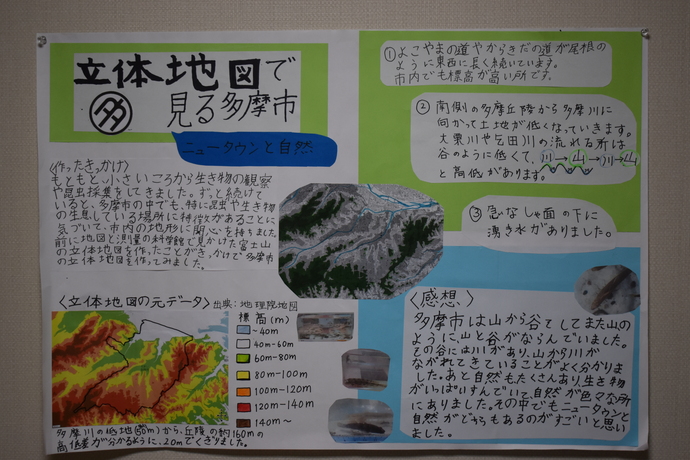 立体地図で
㊂多 見る多摩市
ニュータウンと自然
〈作ったきっかけ〉
もともと、小さいころから生き物の観察
や昆虫採集をしてきました。ずっと続けて
いると、多摩市の中でも、特に昆虫や生き物
の生息している場所に特徴があることに
気づいて、市内の地形に関心を持ちました。
前に地図と測量の科学館で見かけた富士山
の立体地図を作ったことがきっかけで多摩市
の立体地図を作ってみました。
〈立体地図の元データ〉出典:地理院地図
標高(m)
~40m
40m-60m
60m-80m
80m-100m
100m-120m
120m-140m
140m~
多摩川の低地(60m)から、丘陵の約160mの
高低差が分かるように、20mでくぎりました。
①よこやまの道やからきだの道が尾根の
ように東西に長く続いています。
市内でも標高が高い所です。
②南側の多摩丘陵から多摩川に
向かって土地が低くなっていきます。
大栗川や乞田川の流れる所は
谷のように低くて、川→山→川→山
と高低があります。
③急なしゃ面の下に
湧き水がありました。
〈感想〉
多摩市は山から谷そしてまた山の
ように、山と谷がならんでいました。
その谷には川があり、山から川が
ながれてきていることがよく分かりま
した。あと自然もたくさんあり、生き物
がいっぱいすんでいて自然が色々な所
にありました。その中でもニュータウンと
自然がどちらもあるのがすごいと思い
ました。